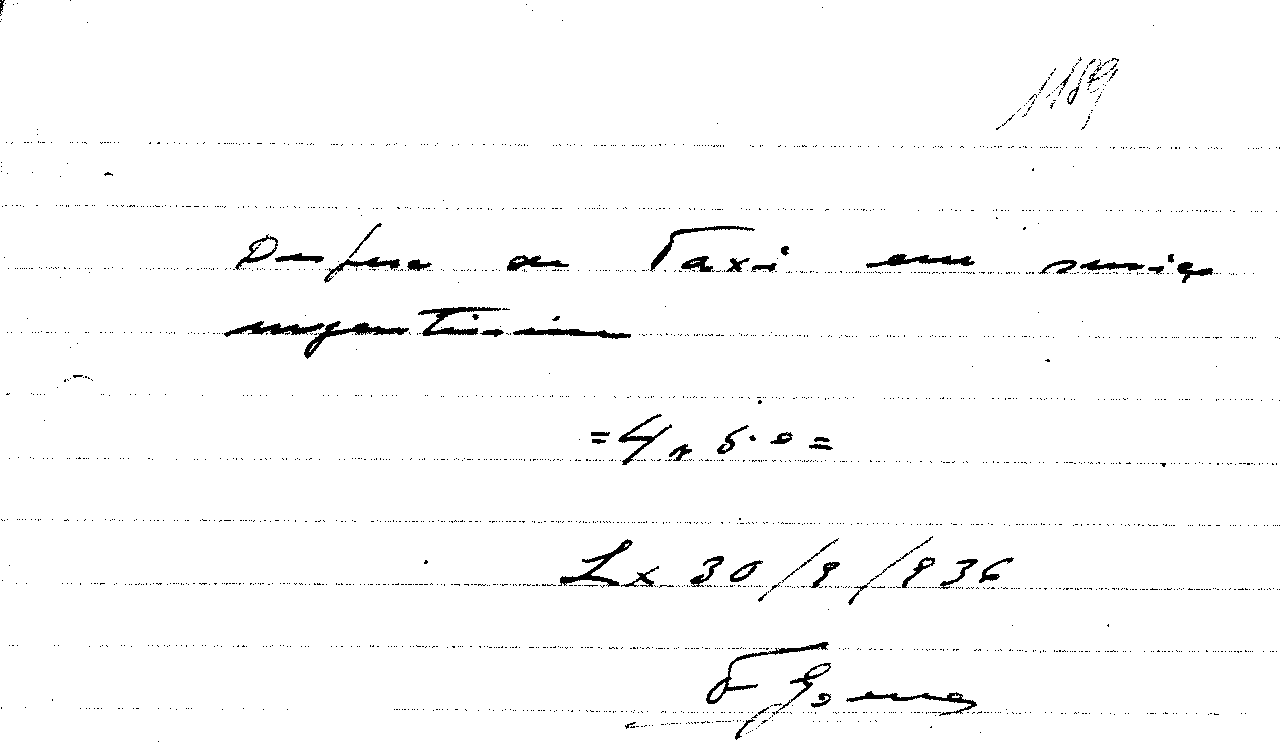 1189
Despesa de Taxi em serviço
urgentissimo
=4,50=
Lx 30/9/936
Gomes